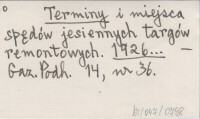 Terminy i miejsca
spędów jesiennych targów
remontowych. 1926... –
Gaz. Podh. 14, nr 36.